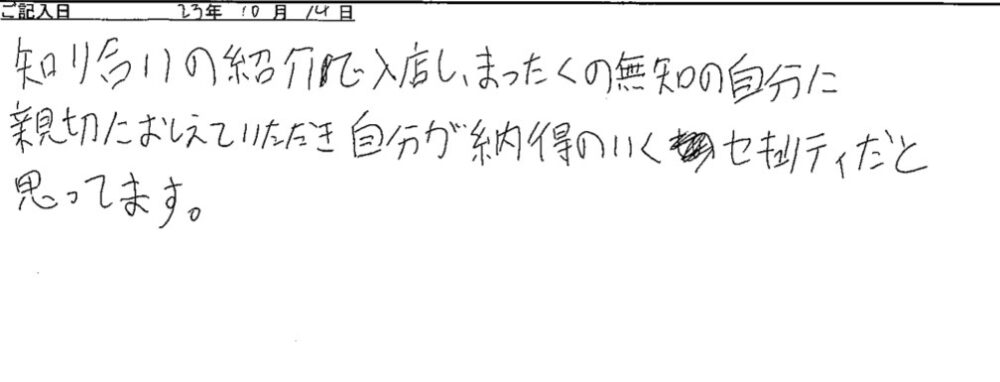 ご記入日 23年 10月 14日
知り合いの紹介で入店し、まったくの無知の自分に
親切におしえていただき自分が納得のいくセキュリティだと
思ってます。